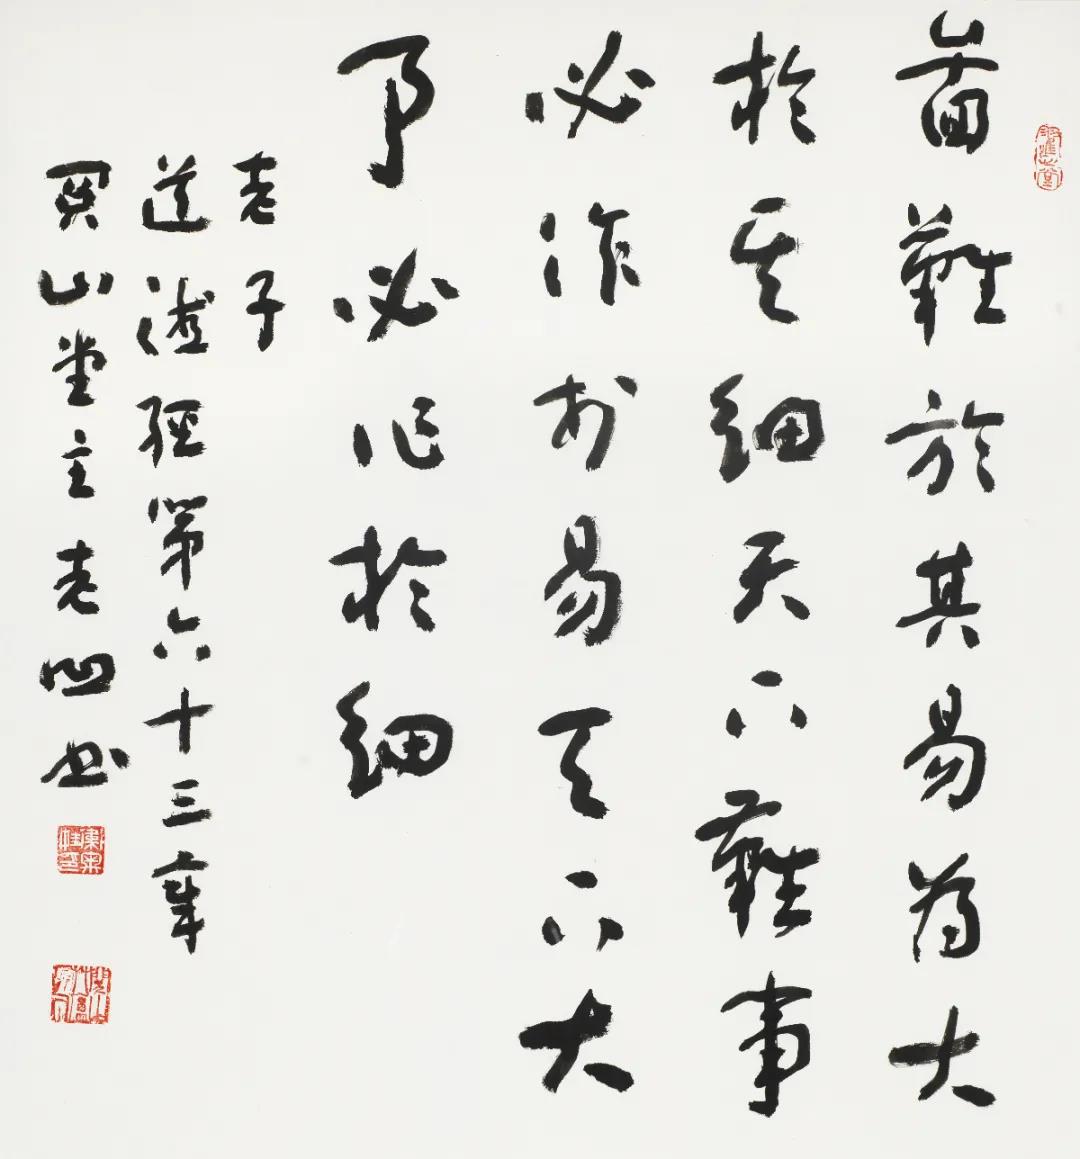 啚難於其易為大
於其細天下難事
必作於易天下大
事必作於細
老子
道德經第六十三章
関山堂主老凹书